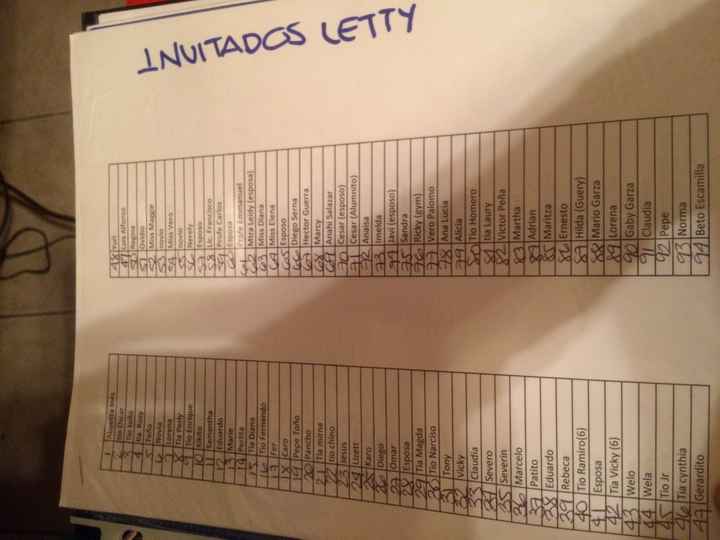 INVITADOS LETTY
5 Toño
6 Nivia
8 Tia Yiya
9 Tio Enrique
11 Samantha
12 Eduardo
13 Marie
14 Perlita
15 Pepa Diana
16 Tio Fernando
17 Fer
18 Caro
19 Pepe Toño
20 Pancho
21 Tia mirna
22 tio chino
23 Jesus
24 Lizett
25 Karo
26 Diego
27 Omar
28 Esposa
29 Tia Magda
30 Tio Narciso
31 Tony
32 Vicky
33 Claudia
34 Severo
35 Severin
36 Marcelo
37 Patito
38 Eduardo
39 Rebeca
40 Tio Ramiro(6)
41 Esposa
42 Tia Vicky (6)
43 Welo
44 Wela
45 Tio Jr
46 Tia cynthia
47 Gerardito
49 Luis Alfonso
50 Regina
52 Miss Maggie
53 novio
54 Miss Vero
56 Nereily
58 Lic. Francisco
59 Profe Carlos
60 Esposa
61 Profe Emmanuel
62 Mtra Leidy (esposa)
63 Miss Diana
64 Miss Elena
65 Esposo
66 Diego Serna
67 Hector Guerra
68 Marsy
69 Anahi Salazar
70 Cesar (esposo)
71 Cesar (Alumnito)
72 Anaisa
74 Javi (esposo)
75 Sandra
76 Ricky (gym)
77 Vero Palomo
78 Ana Lucia
79 Alicia
80 Tio Homero
81 tia Laury
82 Victor Peña
83 Martha
84 Adrian
85 Maritza
86 Ernesto
87 Hilda (Guery)
88 Mario Garza
89 Lorena
90 Gaby Garza
91 Claudia
92 Pepe
93 Norma
94 Beto Escamilla